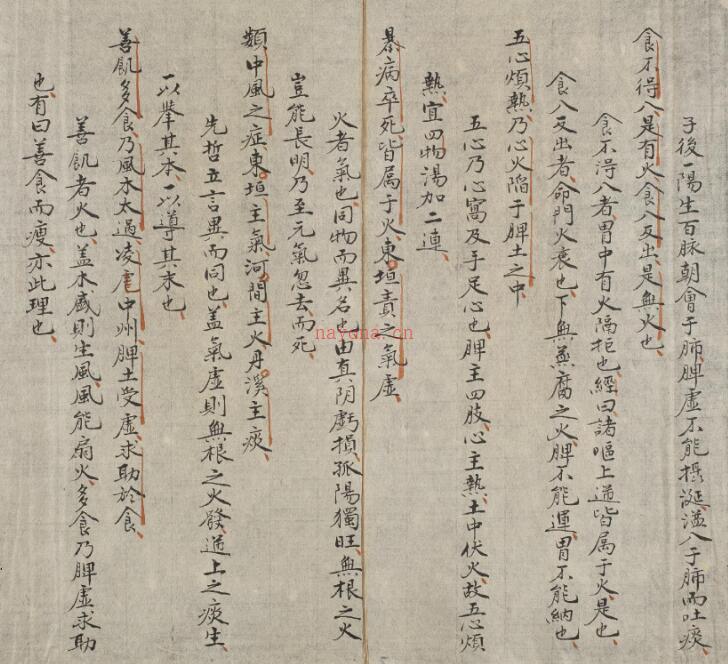 子後一陽生百脉朝會于肺脾虚不能攝涎溢入于肺而吐痰
食不得入是有火食入反出是無火也
食不得入者胃中有火隔拒也經曰諸嘔上逆皆属于火是也
食入反出者命門火衰也下無蒸腐之火脾不能運胃不能納也
五心煩熱乃心火陷于脾土之中
五心乃心窩及手足心也脾主四肢心主熱土中伏火故五心煩
熱宜四物湯加二連
暴病卒死皆属于火東垣責之氣虚
火者氣也同物而異名也由真阴虧損孤陽獨旺無根之火
豈能長明乃至元氣忽去而死
類中風之症東垣主氣河間主火丹溪主痰
先哲立言異而同也盖氣虚則無根之火發逆上之痰生
一以擧其本一以導其末也
善飢多食乃風木太過凌虐中州脾土受虚求助於食
善飢者火也盖木盛則生風風能扇火多食乃脾虚求助
也有曰善食而瘦亦此理也
nayona.cn